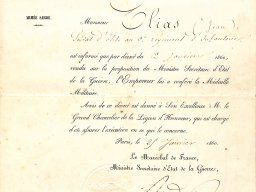 ARMÉE SARDE.
Monsieur Elias (Jean)
Soldat d'élite au 2e régiment d'Infanterie,
est informé que par décret du 2 Janvier 1860,
rendu sur la proposition du Ministre Secrétaire d'État
de la Guerre, l'Empereur lui a conféré la Médaille
Militaire.
Avis de ce décret est donné à Son Excellence M. le
Grand Chancelier de la Légion d'Honneur, qui est chargé
d'en assurer l'exécution en ce qui le concerne.
Paris, le 25 Janvier 1860.
Le Maréchal de France,
Ministre Secrétaire d'État de la Guerre,